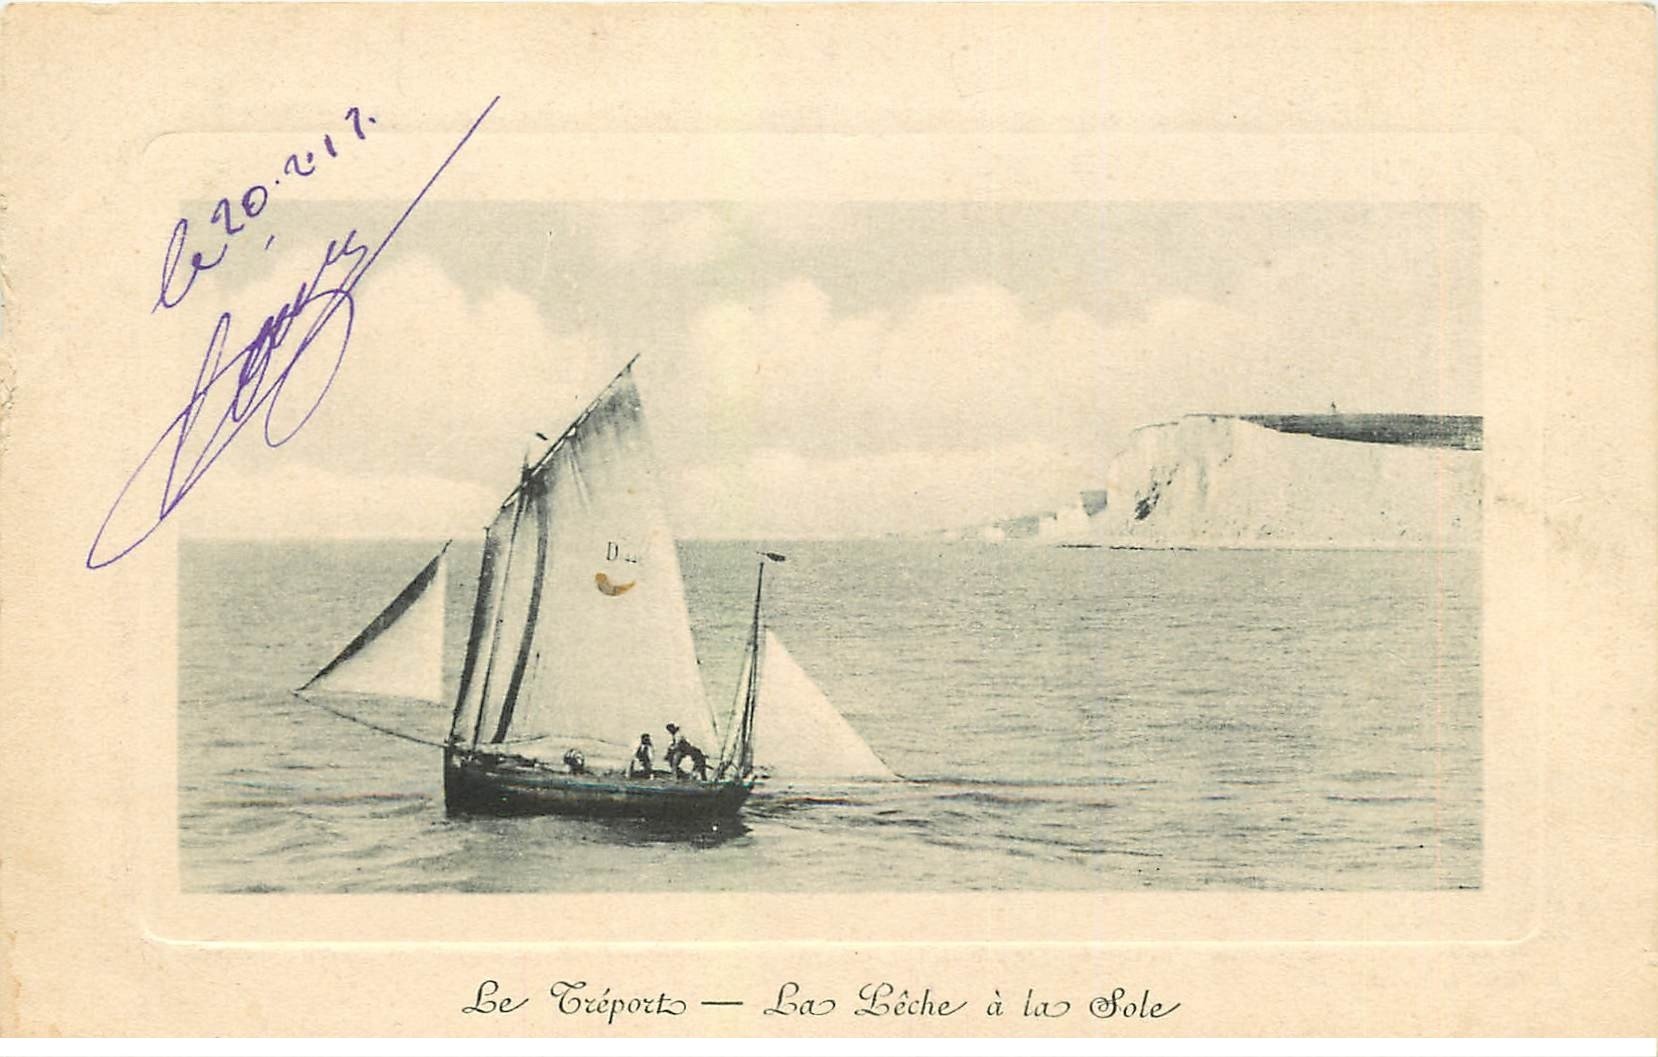 le 20.2.17.
D
Le Tréport — La Pêche à la Sole